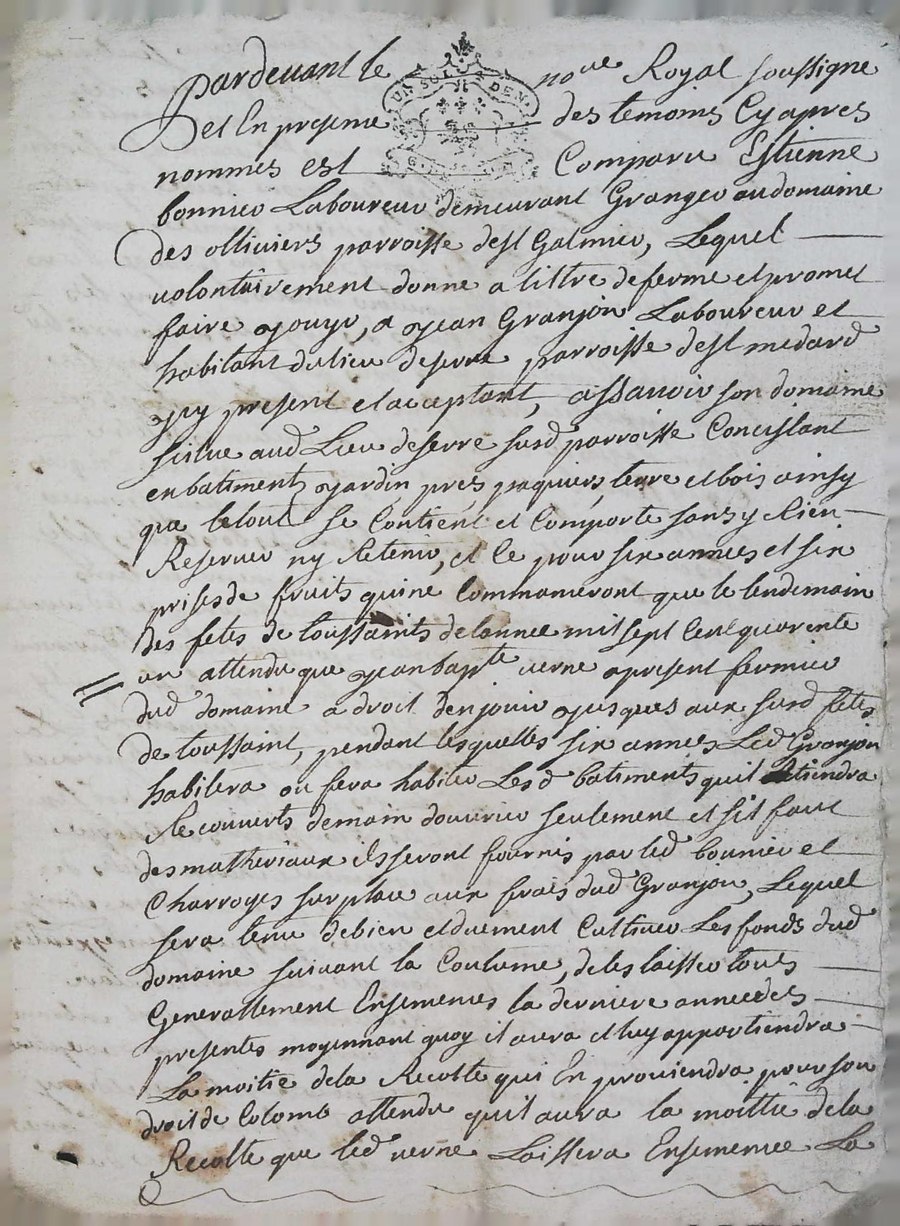 pardevant le no.re Royal soussigne
et En presence des temoins Cy apres
nommes est Comparu Estienne
bonnier Laboureur demeurant Granger au domaine
des olliviers parroisse de st Galmier, Lequel
volontairement donne a tiltre de ferme et promet
faire jouyr, a jean Granjon Laboureur et
habitant du lieu de serre parroisse de st medard
icy present et acceptant, assavoir son domaine
scitue aud Lieu de serre surd parroisse Concistant
en batiments jardin pres paquiers, terre et bois ainsy
que le tout se Contient et Comporte sans y Rien
Reserver ny Retenir, et ce pour six annees et six
prises de fruits qui ne Commanceront que le lendemain
des fetes de toussaints de lannee mil sept Cent quarente
un attendu que jean bapte verne apresent fermier
dud domaine a droit den jouir jusques aux surd fetes
de toussaint, pendant lesquelles six annees Led Granjon
habitera ou fera habiter Lesd batiments quil tiendra
Recouverts de main douvrier seulement et sil faut
des matheriaux ils seront fournis par led bonnier et
Charroyes sur place aux frais dud Granjon, Lequel
sera tenu de bien et duement Cultiver Les fonds dud
domaine suivant la Coutume, de les laisser tous
Generallement Ensemences la derniere annee des
presentes moyennant quoy il aura et luy appartiendra
La moitie de la Recolte qui En proviendra pour son
droit de Colomb attendu quil aura la moittie de la
Recolte que led verne Laissera Ensemencee La
UN SOL DEN